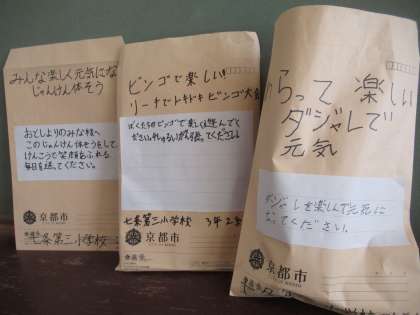 みんな楽しく元気にな
じゃんけん体そう
おとしよりのみな様へ
このじゃんけん体そうをして
けんこうで笑顔あふれる
毎日を送ってください。
京都市
七条第三小学校
ビンゴで楽しい!
リーチでドキドキ ビンゴ大会
ぼくたちのビンゴで楽しく遊んで
ください。
七条第三小学校 3年2組
京都市
らって楽しい
ダジャレで
元気
ダジャレを楽しんで元気に
なってください。
京都市